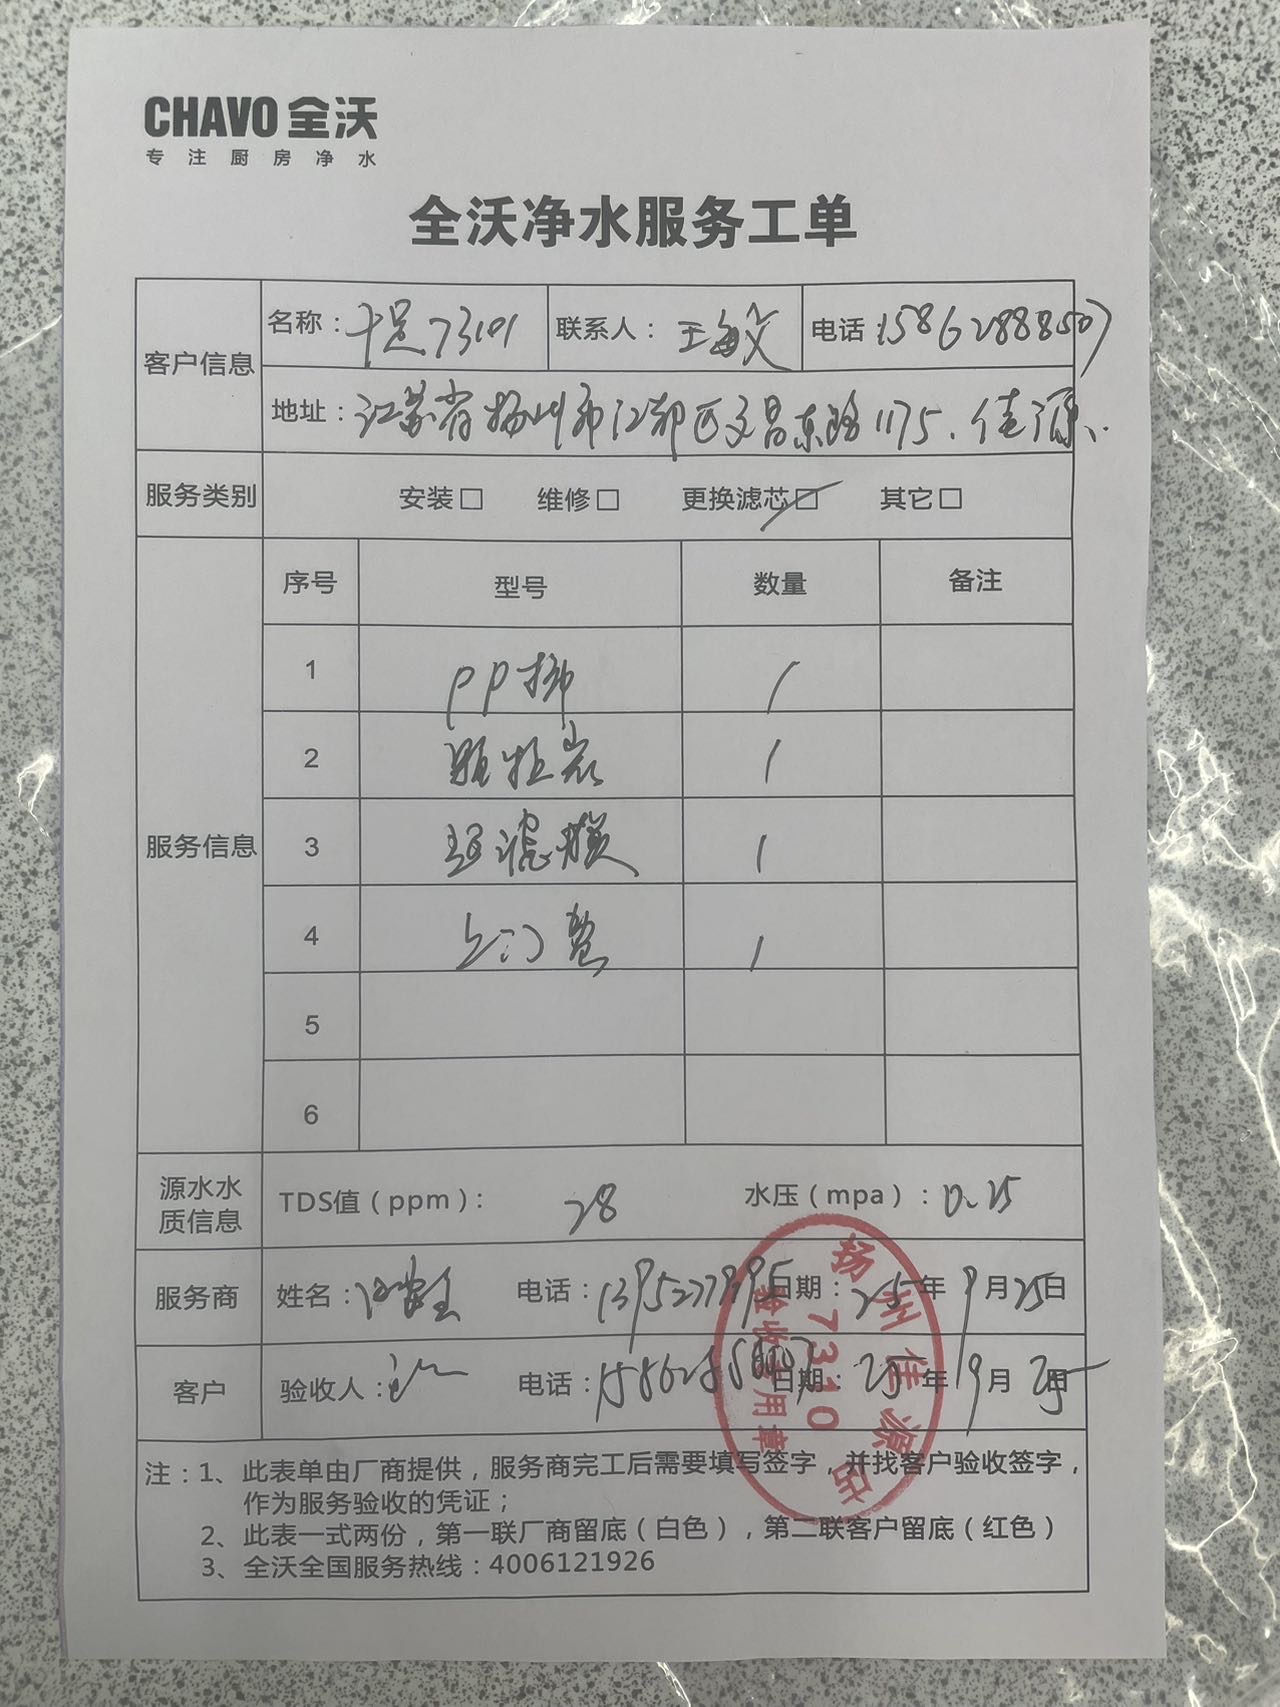 CHAVO 全沃
专注厨房净水
全沃净水服务工单
客户信息
名称：十足73101
联系人：王海文
电话：15862888507
地址：江苏省扬州市江都区文昌东路1175、佳源、
服务类别
安装□ 维修□ 更换滤芯□ 其它□
服务信息
序号 型号 数量 备注
1 PP棉 1
2 颗粒炭 1
3 超滤膜 1
4 上门费 1
5
6
源水水质信息
TDS值（ppm）：28
水压（mpa）：0.25
服务商
姓名：
电话：13952779995
日期：25年9月25日
客户
验收人：
电话：
日期：25年9月25日
扬州佳源店
7310
验收专用章
注：1、此表单由厂商提供，服务商完工后需要填写签字，并找客户验收签字，
作为服务验收的凭证；
2、此表一式两份，第一联厂商留底（白色），第二联客户留底（红色）
3、全沃全国服务热线：4006121926